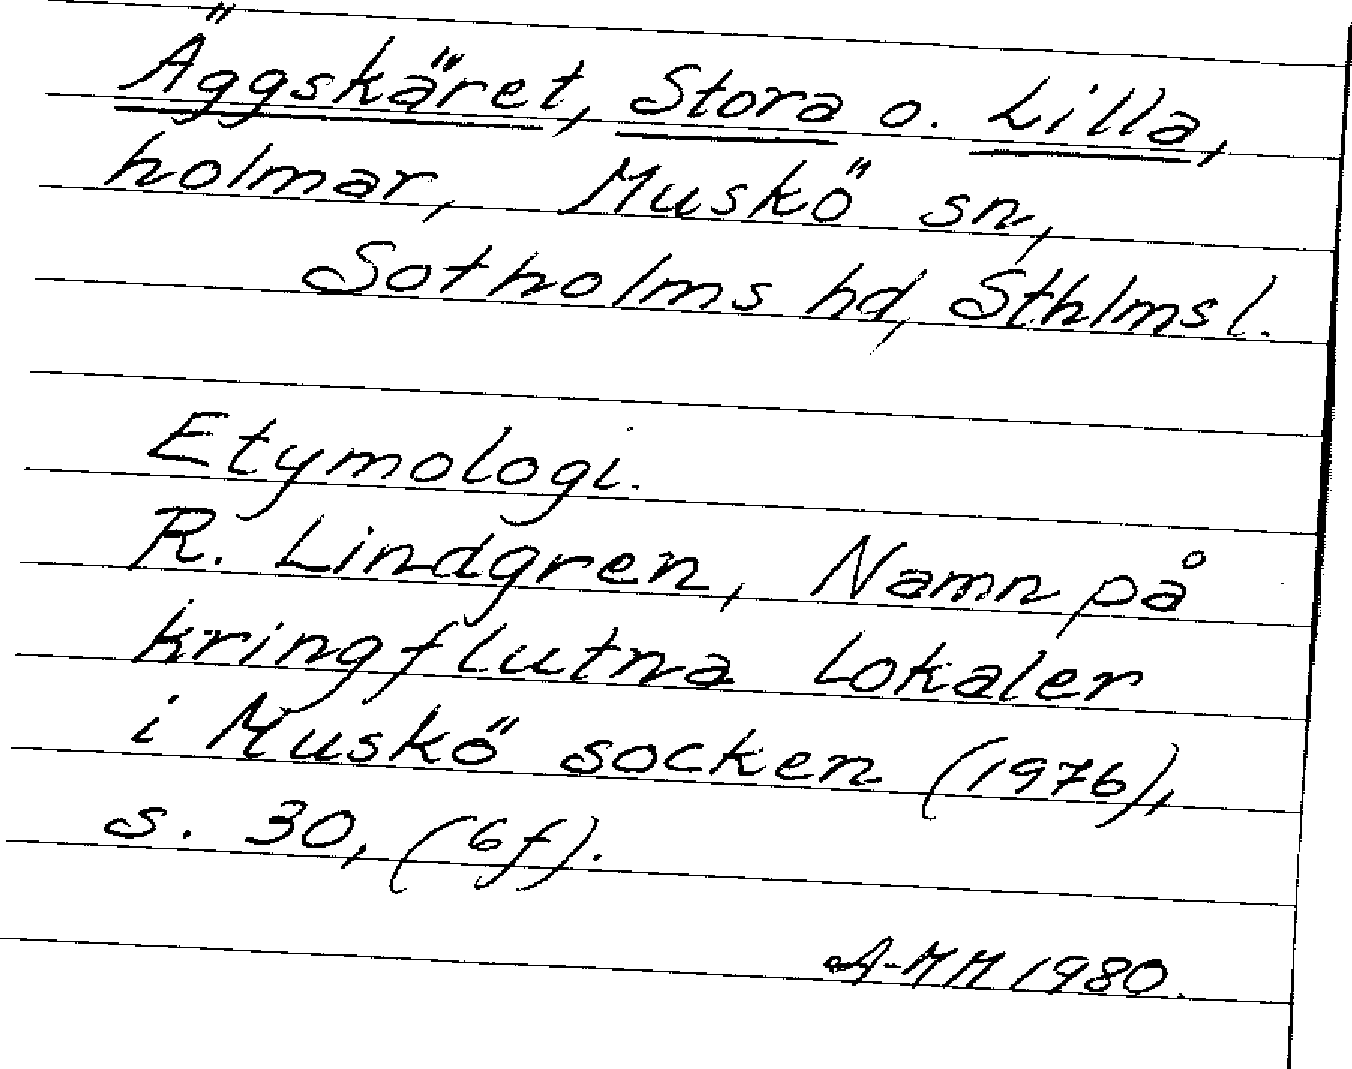 Äggskäret, Stora o. Lilla,
holmar, Muskö sn,
Sotholms hd, Sthlms l.
Etymologi.
R. Lindgren, Namn på
kringflutna lokaler
i Muskö socken (1976),
s. 30, (6f).
A-MM 1980.